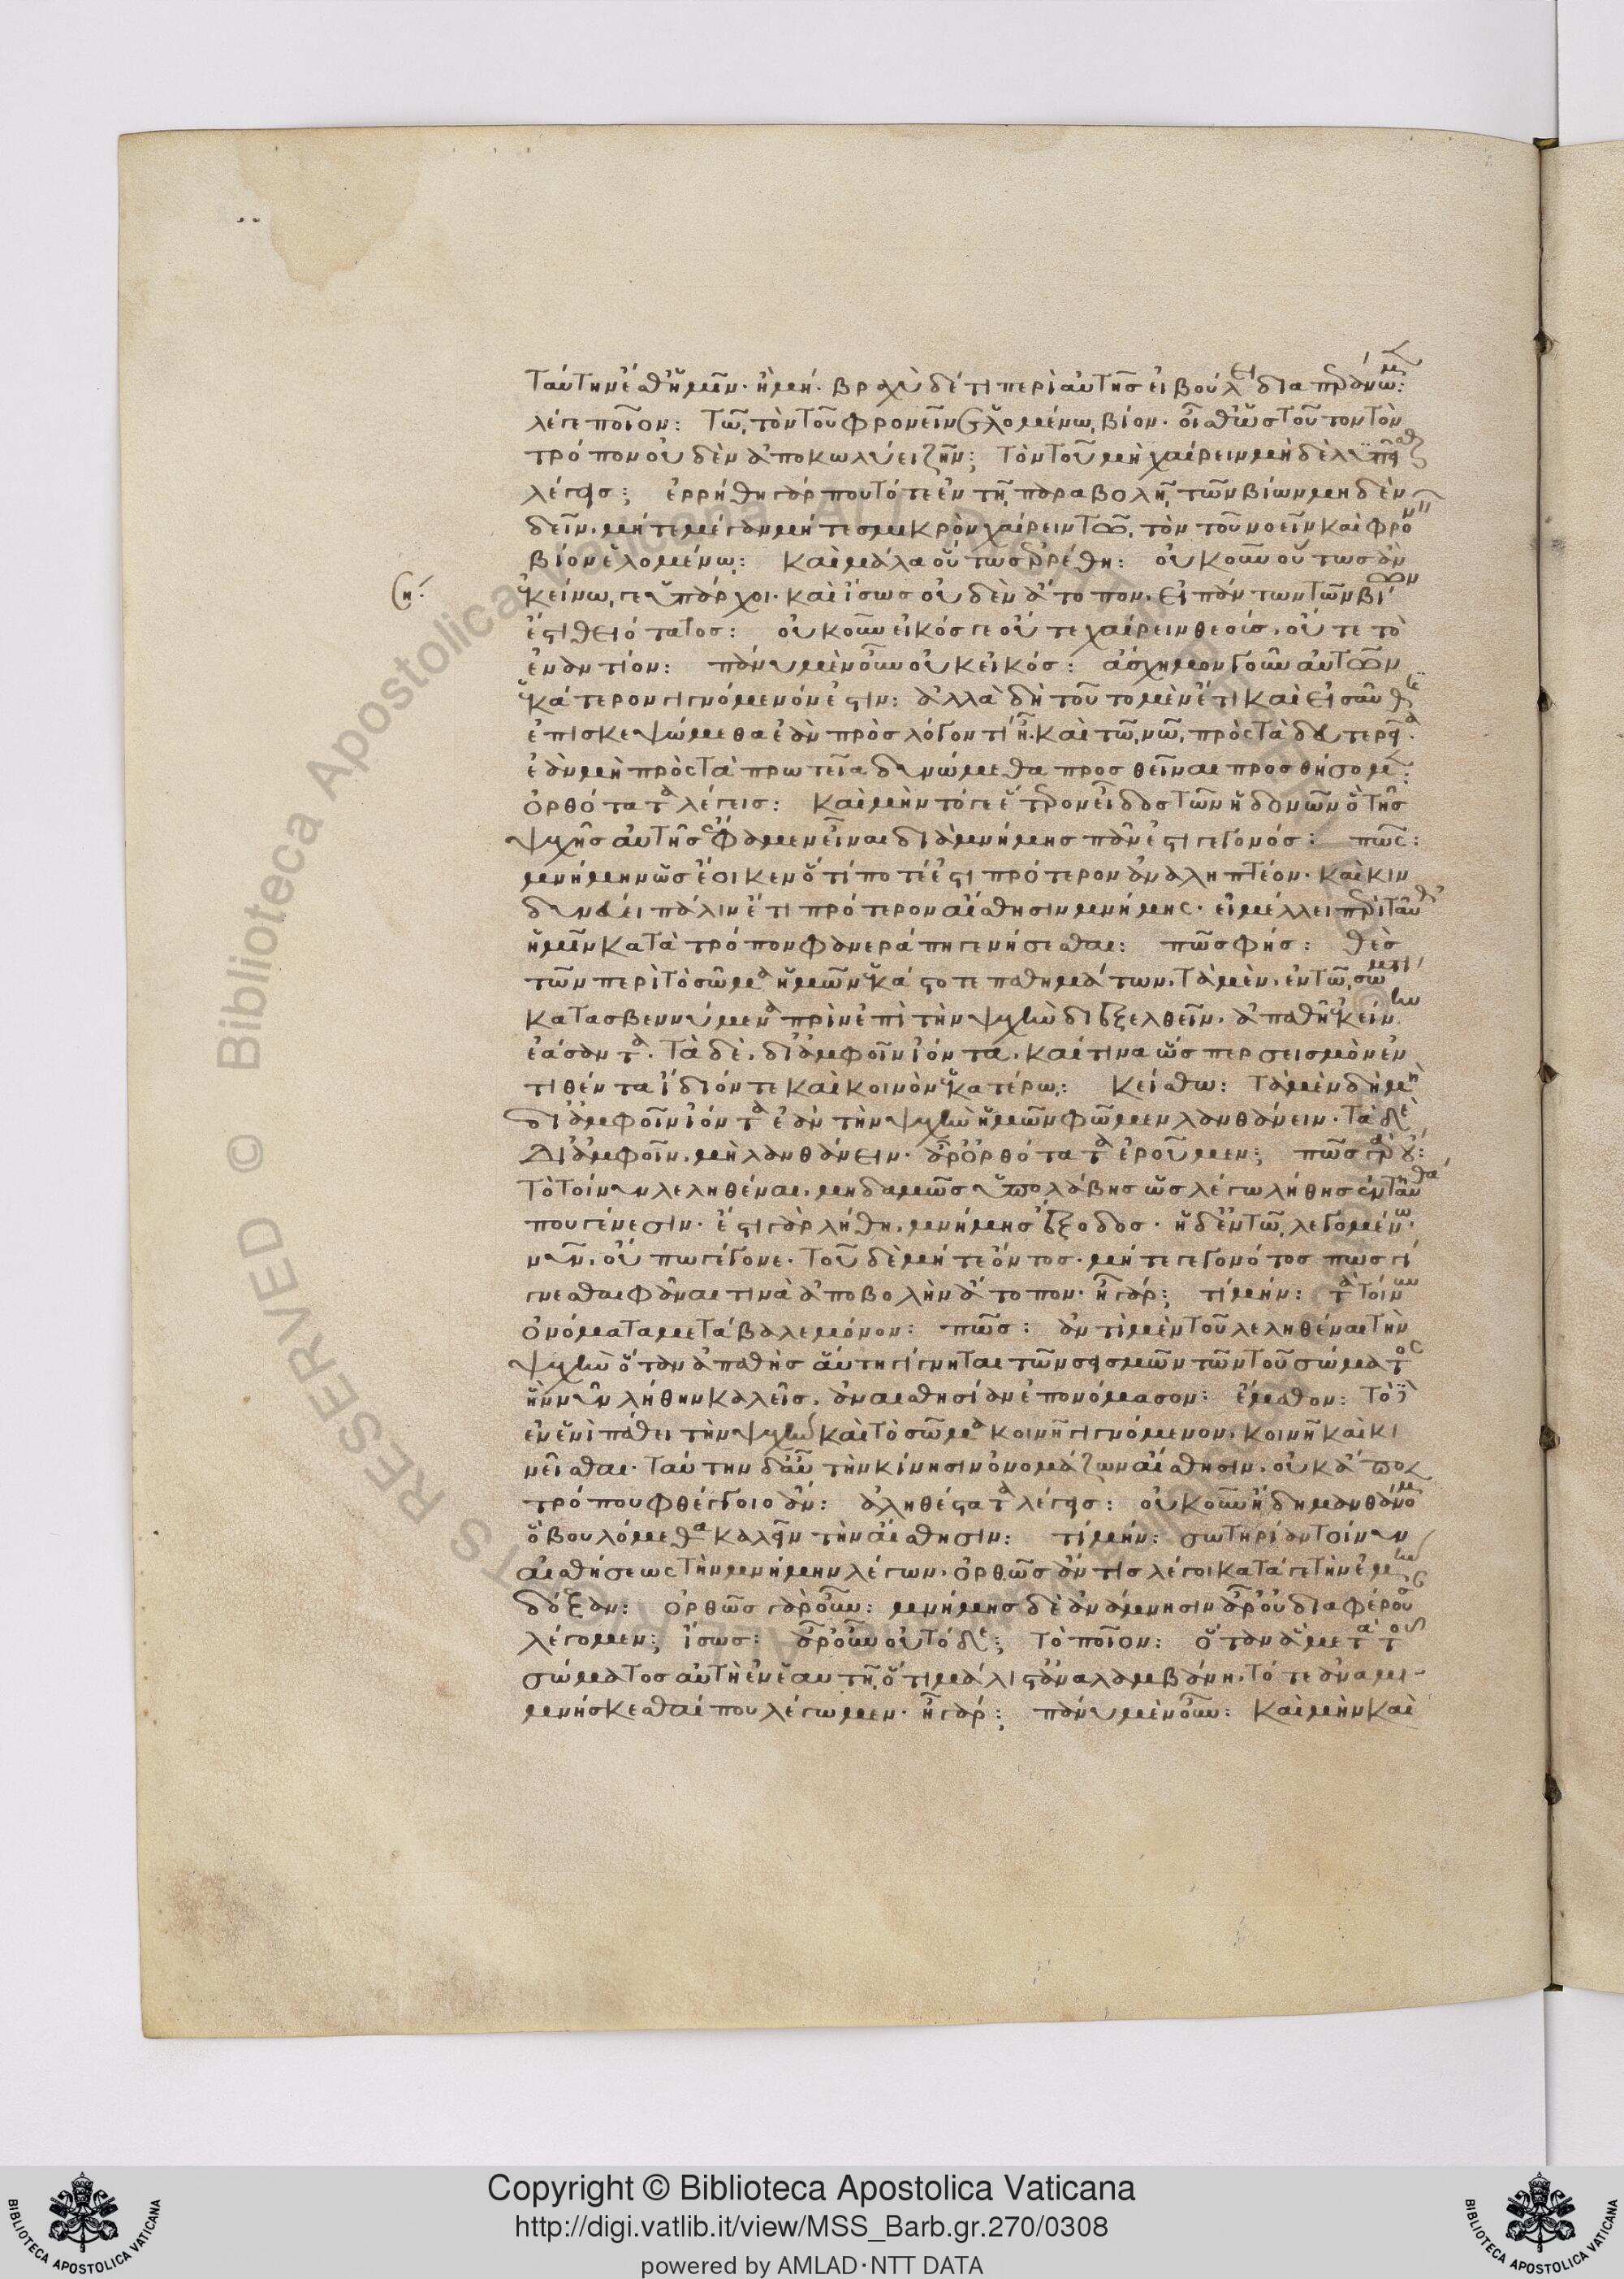 ταύτην ἔσθ' ἡμῖν· ἢ μή· βραχὺ δέ τι περὶ αὐτῆς εἰ βούλει διαπεράνωμεν:
λέγε ποῖον: τῶ, τὸν τοῦ φρονεῖν ἑλομένω, βίον· οἶσθ' ὡς τοῦτον τὸν
τρόπον οὐδὲν ἀποκωλύει ζῆν; τὸν τοῦ μὴ χαίρειν μὴ δὲ λυπεῖσθαι
λέγεις; ἐρρήθη γάρ που τότε ἐν τῆ, παραβολῆ, τῶν βίων μηδὲν
δεῖν. μήτε μέγαν μήτε σμικρὸν χαίρειν τῶ, τὸν τοῦ νοεῖν καὶ φρονεῖν
βίον ἑλομένω,: καὶ μάλα οὕτως ἐρρέθη: οὐκοῦν οὕτως ἂν
ση: ἐκείνω, γε ὑπάρχοι. καὶ ἴσως οὐδὲν ἄτοπον. εἰ πάντων τῶν βίων
ἐστὶ θειότατος: οὐκοῦν εἰκός γε οὔτε χαίρειν θεοὺς. οὔτε τὸ
ἐναντίον: πάνυ μὲν οὖν οὐκ εἰκός: ἄσχημον γοῦν αὐτῶν
ἑκάτερον γιγνόμενόν ἐστιν: ἀλλὰ δὴ τοῦτο μὲν ἔτι καὶ εἰσαῦθις
ἐπισκεψώμεθα ἐὰν πρὸς λόγον τὶ ἦ. καὶ τῶ, νῶ, πρὸς τὰ δευτερεῖα.
ἐὰν μὴ πρὸς τὰ πρωτεῖα δυνώμεθα προσθεῖναι προσθήσομεν:
ὀρθότατα λέγεις: καὶ μὴν τό γε ἕτερον εἶδος τῶν ἡδονῶν ὃ τῆς
ψυχῆς αὐτῆς ἔφαμεν εἶναι διὰ μνήμης πᾶν ἐστι γεγονός: πῶς:
μνήμην ὡς ἔοικεν ὅτί ποτέ ἐστι πρότερον ἀναληπτέον. καὶ κιν
δυνεύει πάλιν ἔτι πρότερον αἴσθησιν μνήμης. εἰ μέλλει περὶ ταῦθ'
ἡμῖν κατὰ τρόπον φανερά πη γενήσεσθαι: πῶς φής: θὲς
τῶν περὶ τὸ σῶμα ἡμῶν ἑκάστοτε παθημάτων. τὰ μὲν. ἐν τῶ, σώματι
κατασβεννύμενα πρὶν ἐπὶ τὴν ψυχὴν διεξελθεῖν. ἀπαθῆ ἐκείνην
ἐάσαντα. τὰ δὲ. δι' ἀμφοῖν ἰόντα. καί τινα ὥσπερ σεισμὸν ἐν
τιθέντα ἴδιόν τε καὶ κοινὸν ἑκατέρω,: κείσθω: τὰ μὲν δὴ μὴ
δι' ἀμφοῖν ἰόντα ἐὰν τὴν ψυχὴν ἡμῶν φῶμεν λανθάνειν. τὰ δὲ
δι' ἀμφοῖν. μὴ λανθάνειν. ἆρ' ὀρθότατα ἐροῦμεν; πῶς γὰρ οὔ:
τὸ τοίνυν λεληθέναι. μηδαμῶς ὑπολάβης ὡς λέγω λήθης ἐνταῦθα
που γένεσιν. ἔστι γὰρ λήθη. μνήμης ἔξοδος. ἡ δ' ἐν τῶ, λεγομένω
νῦν. οὔπω γέγονε. τοῦ δὲ μήτε ὄντος. μήτε γεγονότος πω γί
γνεσθαι φάναι τινὰ ἀποβολὴν ἄτοπον. ἦ γάρ; τί μήν: τὰ τοίνυν
ὀνόματα μετάβαλε μόνον: πῶς: ἀντὶ μὲν τοῦ λεληθέναι τὴν
ψυχὴν ὅταν ἀπαθὴς αὕτη γίγνηται τῶν σεισμῶν τῶν τοῦ σώματος
ἣν νῦν λήθην καλεῖς. ἀναισθησίαν ἐπονόμασον: ἔμαθον: τὸ δ'
ἐν ἑνὶ πάθει τὴν ψυχὴν καὶ τὸ σῶμα κοινῆ γιγνόμενον. κοινῆ καὶ κι
νεῖσθαι. ταύτην δ' αὖ τὴν κίνησιν ὀνομάζων αἴσθησιν. οὐκ ἄπο
τρόπου φθέγγοιο ἄν: ἀληθέστατα λέγεις: οὐκοῦν ἤδη μανθάνομεν
ὃ βουλόμεθα καλεῖν τὴν αἴσθησιν: τί μήν: σωτηρίαν τοίνυν
αἰσθήσεως τὴν μνήμην λέγων. ὀρθῶς ἄν τις λέγοι κατά γε τὴν ἐμὴν
δόξαν: ὀρθῶς γὰρ οὖν: μνήμης δὲ ἀνάμνησιν ἆρ' οὐ διαφέρουσαν
λέγομεν; ἴσως: ἆρ' οὖν οὐ τόδε; τὸ ποῖον: ὅταν ἃ μετὰ τοῦ
σώματος αὐτὴ ἐν ἑαυτῆ, ὅτι μάλιστα ἀναλαμβάνη. τότε ἀναμι-
μνήσκεσθαί που λέγωμεν. ἦ γάρ; πάνυ μὲν οὖν: καὶ μὴν καὶ
Copyright © Biblioteca Apostolica Vaticana
http://digi.vatlib.it/view/MSS_Barb.gr.270/0308
powered by AMLAD·NTT DATA
BIBLIOTECA APOSTOLICA VATICANA
BIBLIOTECA APOSTOLICA VATICANA